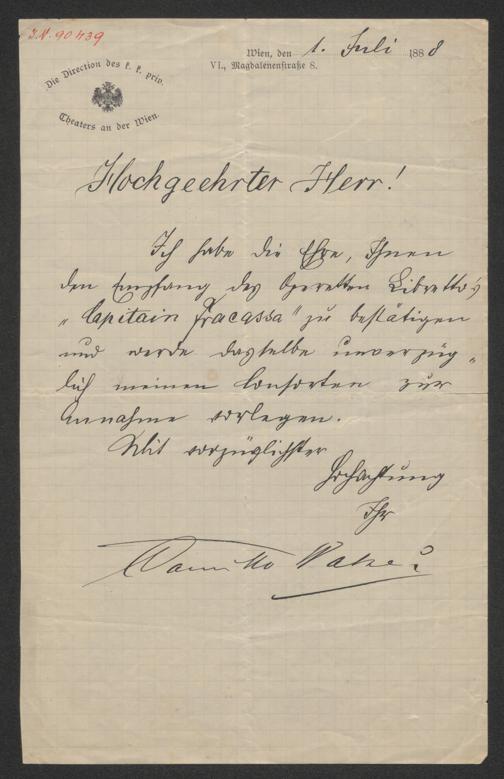 J.N. 90439
Wien, den 1. Juli 1888
VI., Magdalenenstraße 8.
Die Direction des k. k. priv.
Theaters an der Wien.
Hochgeehrter Herr!
Ich habe die Ehre, Ihnen
den Empfang des Operetten Libretto's
„Capitain Fracassa" zu bestätigen
und werde dasselbe unverzüg„
lich meinen Consorten zur
Annahme vorlegen.
Mit vorzüglichster
Hochachtung
Ihr